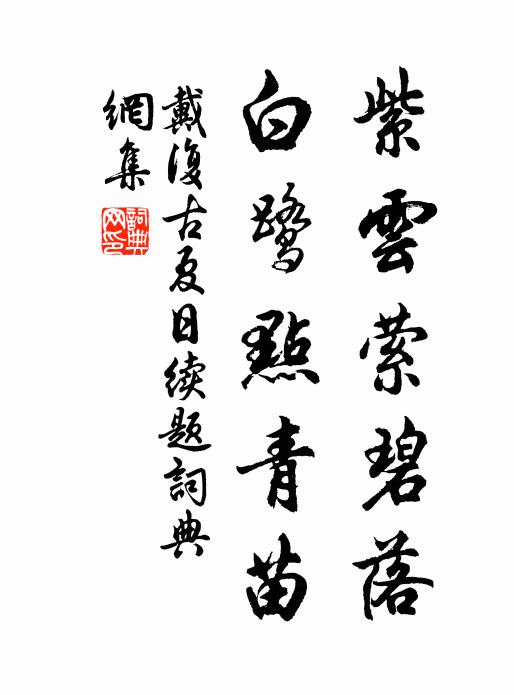 紫雲萦碧落
白鹭點青苗
戴復古夏日续题詞典
網集
詞典
网印